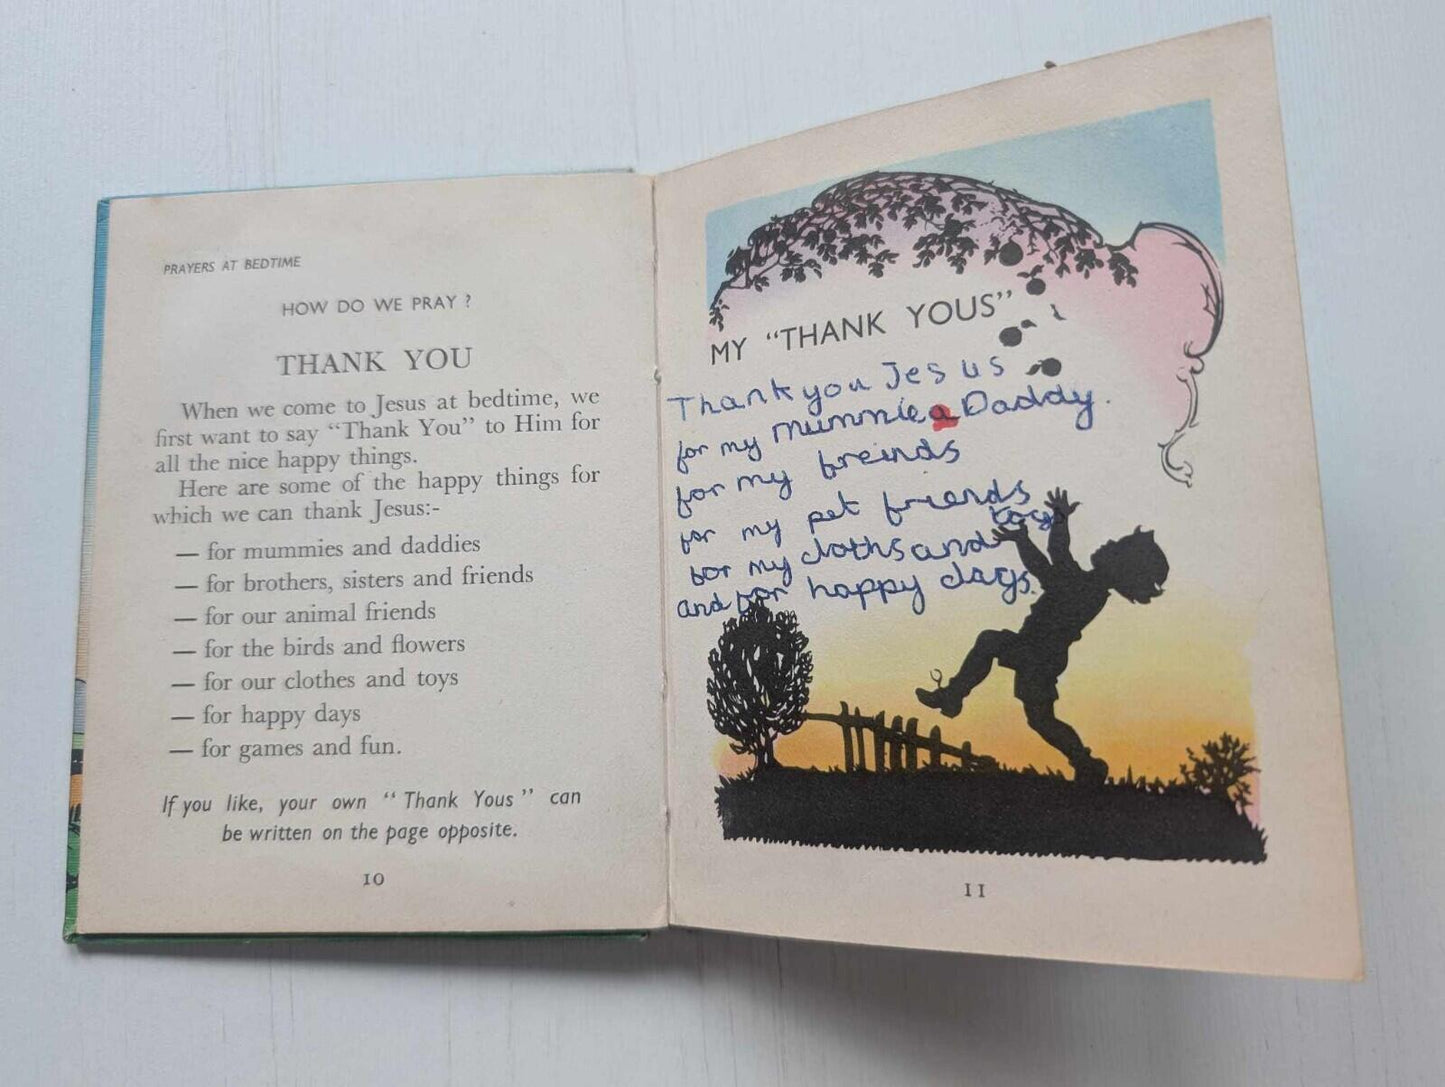 PRAYERS AT BEDTIME
HOW DO WE PRAY ?
THANK YOU
When we come to Jesus at bedtime, we
first want to say “Thank You” to Him for
all the nice happy things.
Here are some of the happy things for
which we can thank Jesus:-
— for mummies and daddies
— for brothers, sisters and friends
— for our animal friends
— for the birds and flowers
— for our clothes and toys
— for happy days
— for games and fun.
If you like, your own “ Thank Yous ” can
be written on the page opposite.
10
MY “THANK YOUS”
Thank you Jesus
for my mummie a Daddy.
for my freinds
for my pet friends
for my cloths and toys
and for happy days.
11